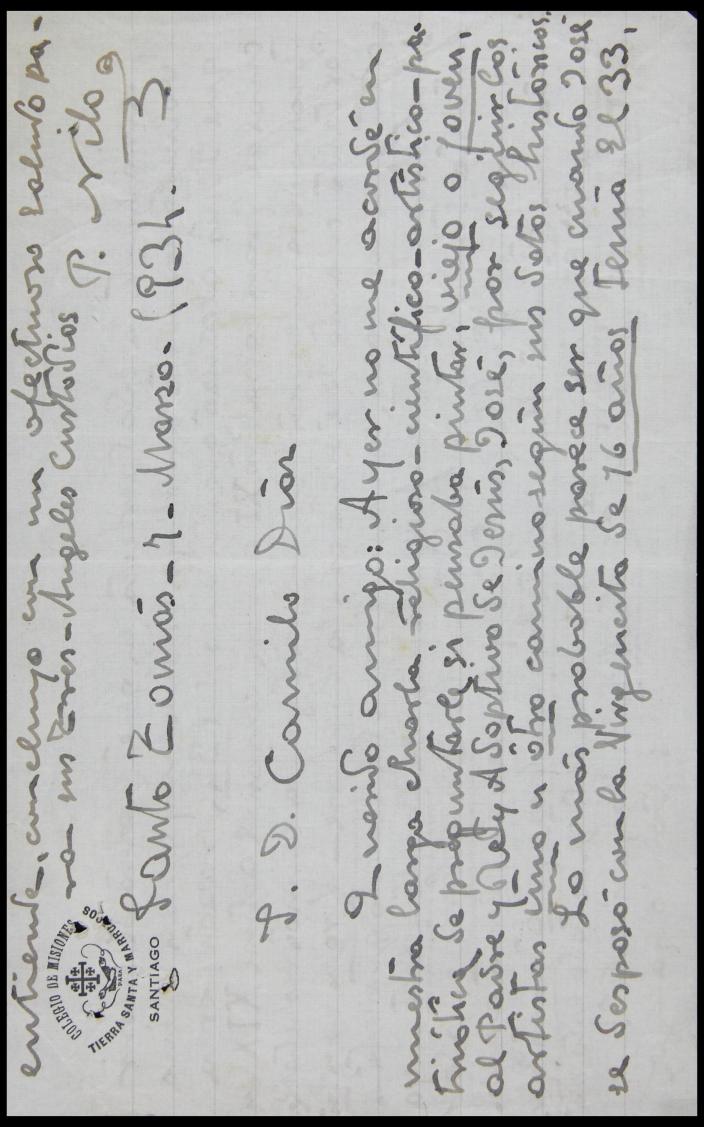 entiende, concluyo con un afectuoso saludo pa-
ra sus Tres-Angeles Custodios P. Nilo,
3
COLEGIO DE MISIONES
PARA
TIERRA SANTA Y MARRUECOS
SANTIAGO
Santo Tomás - 7 - Marzo - 1934.
S. D. Camilo Díaz
Querido amigo: Ayer no me acordé en
nuestra larga charla religioso-científico-artístico-pa-
triótica de preguntarle si pensaba pintar, viejo o joven,
al Padre y Adoptivo de Jesús, José, por seguir los
artistas uno u otro camino según sus datos históricos.
Lo más probable parece ser que cuando José
se desposó con la Virgencita de 16 años tenía el 33,